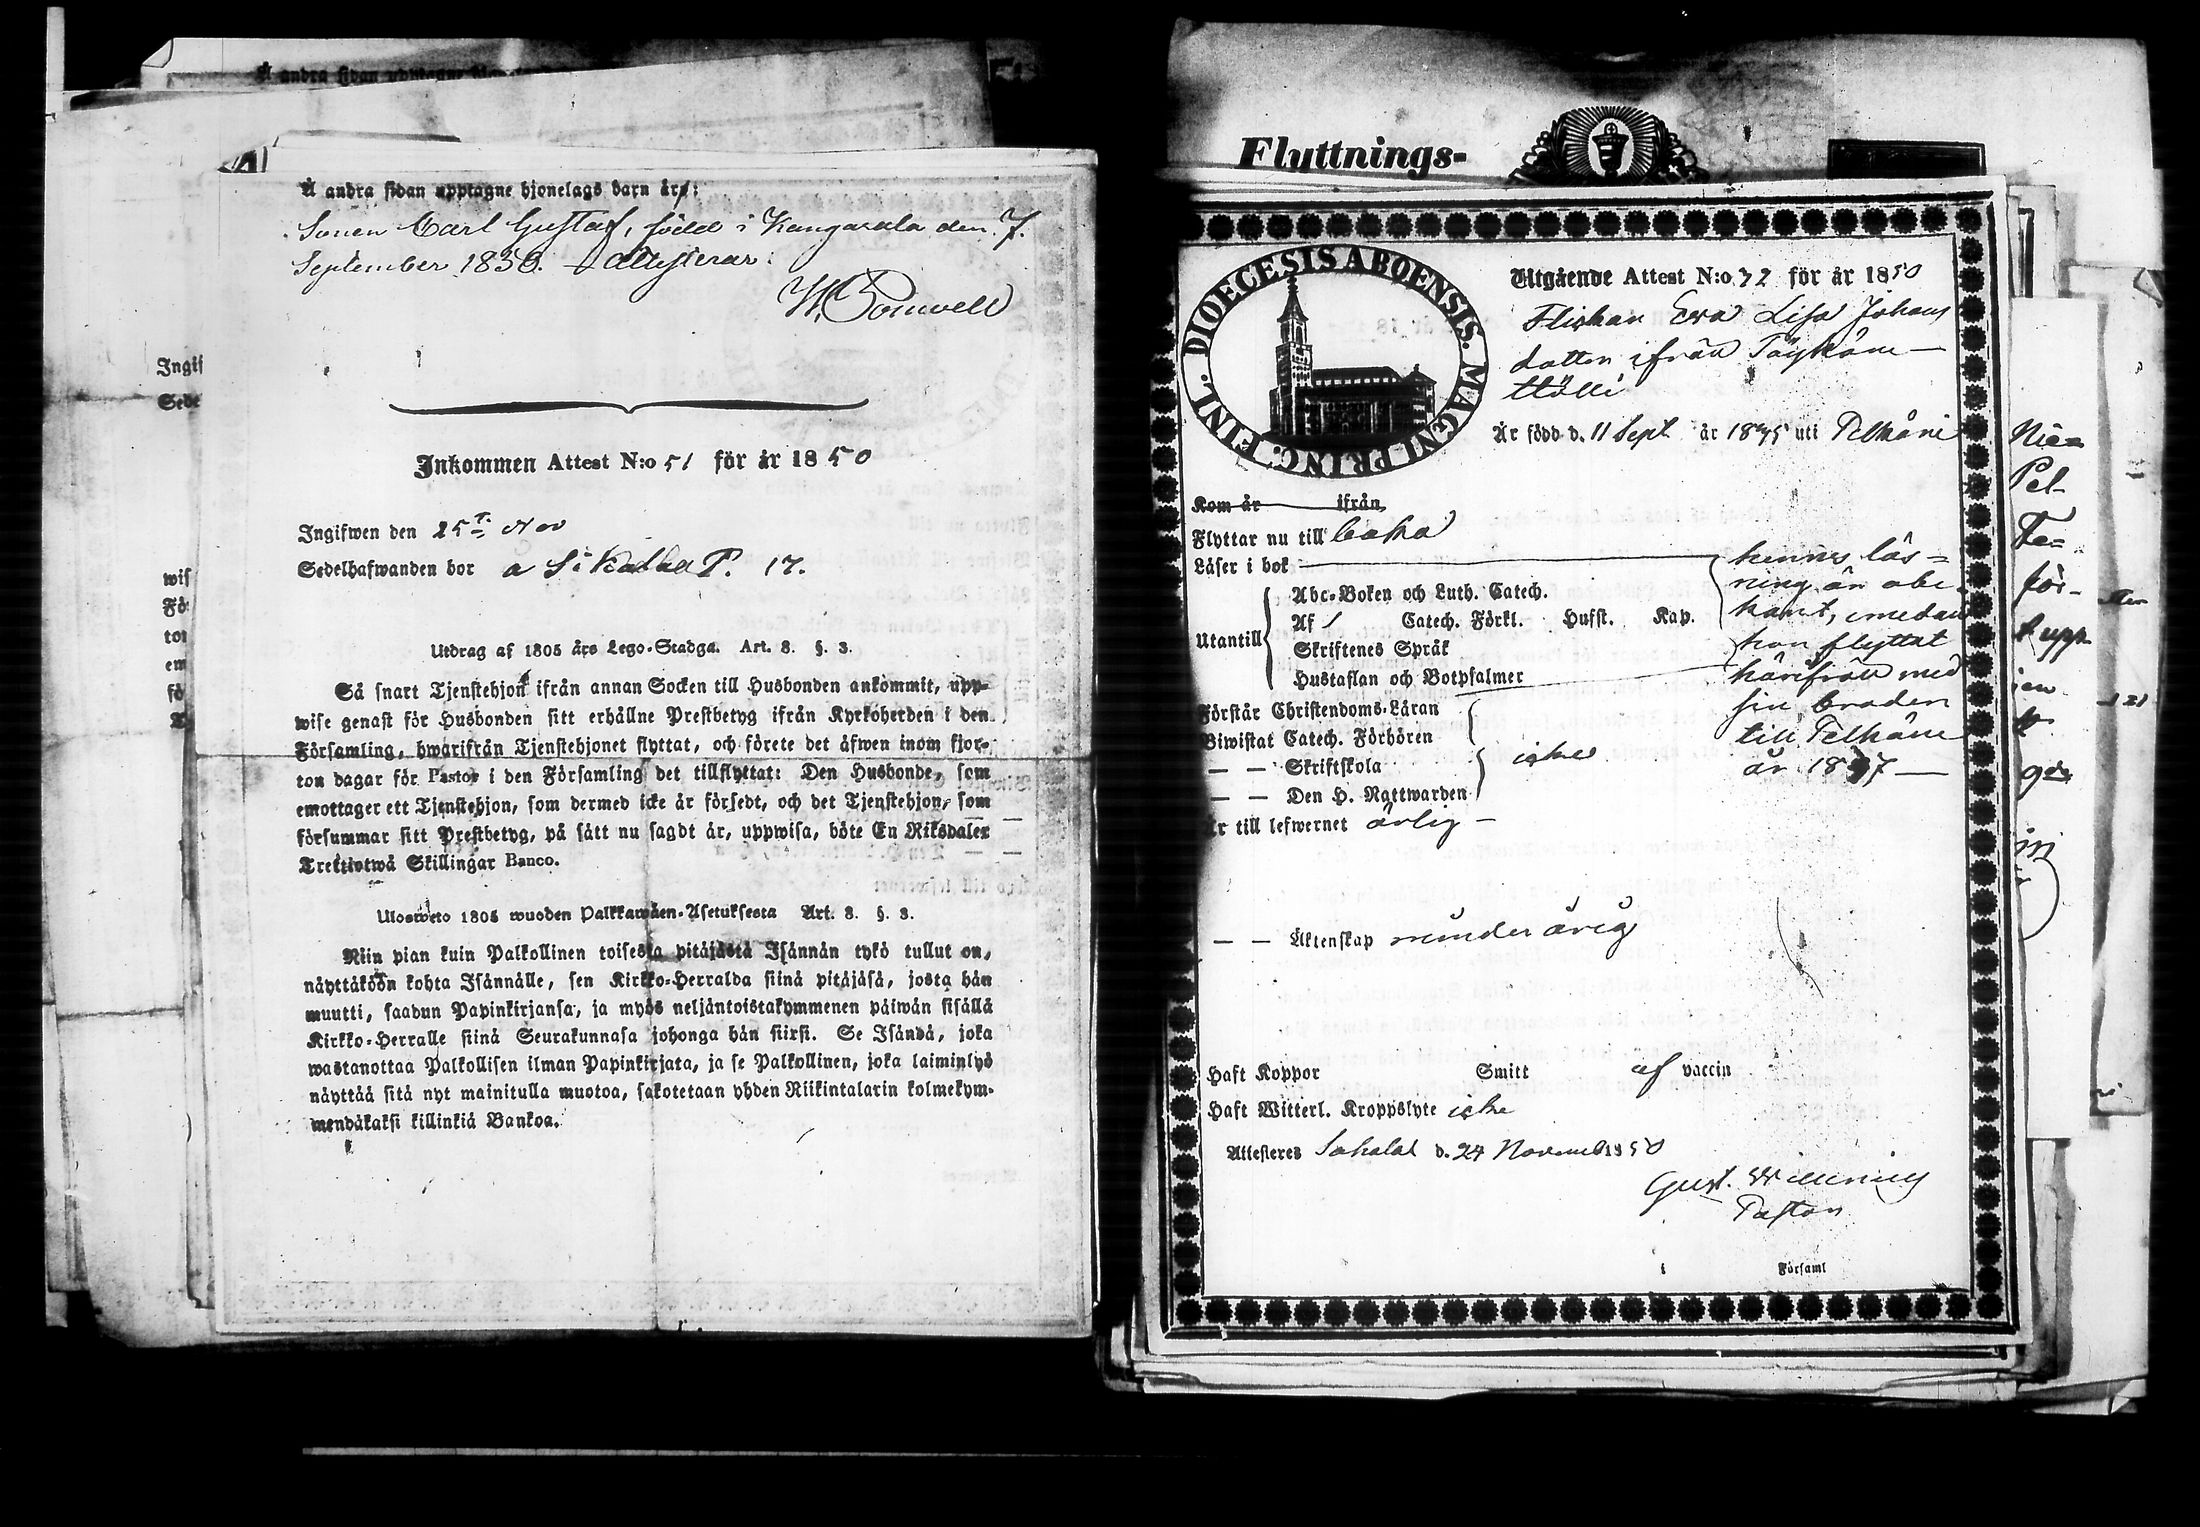 Å andra sidan upptagne hjonelags barn äro:
Sonen Carl Gustaf, född i Kangasala den 7.
September 1836. Attesterar:
Inkommen Attest N:o 51 för år 1850
Ingifwen den 25 Nov
Sedelhafwanden bor å P. 17.
Utdrag af 1805 års Lego-Stadga. Art. 8. §. 3.
Så snart Tjenstehjon ifrån annan Socken till Husbonden ankommit, upp-
wise genast för Husbonden sitt erhållne Prestbetyg ifrån Kyrkoherden i den
Församling, hwarifrån Tjenstehjonet flyttat, och förete det äfwen inom fjor-
ton dagar för Pastor i den Församling det tillflyttat: Den Husbonde, som
emottager ett Tjenstehjon, som dermed icke är försedt, och det Tjenstehjon, som
försummar sitt Prestbetyg, på sätt nu sagdt är, uppwisa, böte En Riksdaler
Trettiotwå Skillingar Banco.
Ulosweto 1805 wuoden Palkkawäen-Asetuksesta Art. 8. §. 3.
Niin pian kuin Palkollinen toisesta pitäjästä Isännän tykö tullut on,
näyttäköön kohta Isännälle, sen Kirkko-Herralda siinä pitäjäsä, josta hän
muutti, saadun Papinkirjansa, ja myös neljäntoistakymmenen päiwän sisällä
Kirkko-Herralle siinä Seurakunnasa johonga hän siirsi. Se Isändä, joka
wastanottaa Palkollisen ilman Papinkirjata, ja se Palkollinen, joka laiminlyö
näyttää sitä nyt mainitulla muotoa, sakotetaan yhden Riikintalarin kolmekym-
mendäkaksi killinkiä Bankoa.
Flyttnings-
DIOECESIS ABOENSIS. MAGNI PRINC. FINL.
Utgående Attest N:o 32 för år 1850
Flickan Eva Lisa Johans
dotter ifrån
Är född d. 11 Sept år uti Pelkäne
Kom år ifrån
Flyttar nu till
Läser i bok
Utantill
Abc-Boken och Luth. Catech.
Af Catech. Förkl. Husst. Kap.
Skriftenes Språk
Hustaflan och Botpsalmer
hennes läs-
ning är obe-
kant, emedan
hon flyttat
härifrån med
sin broder
till Pelkäne
år
Förstår Christendoms-Läran
Biwistat Catech. Förhören
— — Skriftskola
— — Den H. Nattwarden
icke
Är till lefwernet ärlig —
— — Äktenskap minderårig
Haft Koppor Smitt af vaccin
Haft Witterl. Kroppslyte icke
Attesteres d. 24 November 1850
Gust.
Pastor
i Församl